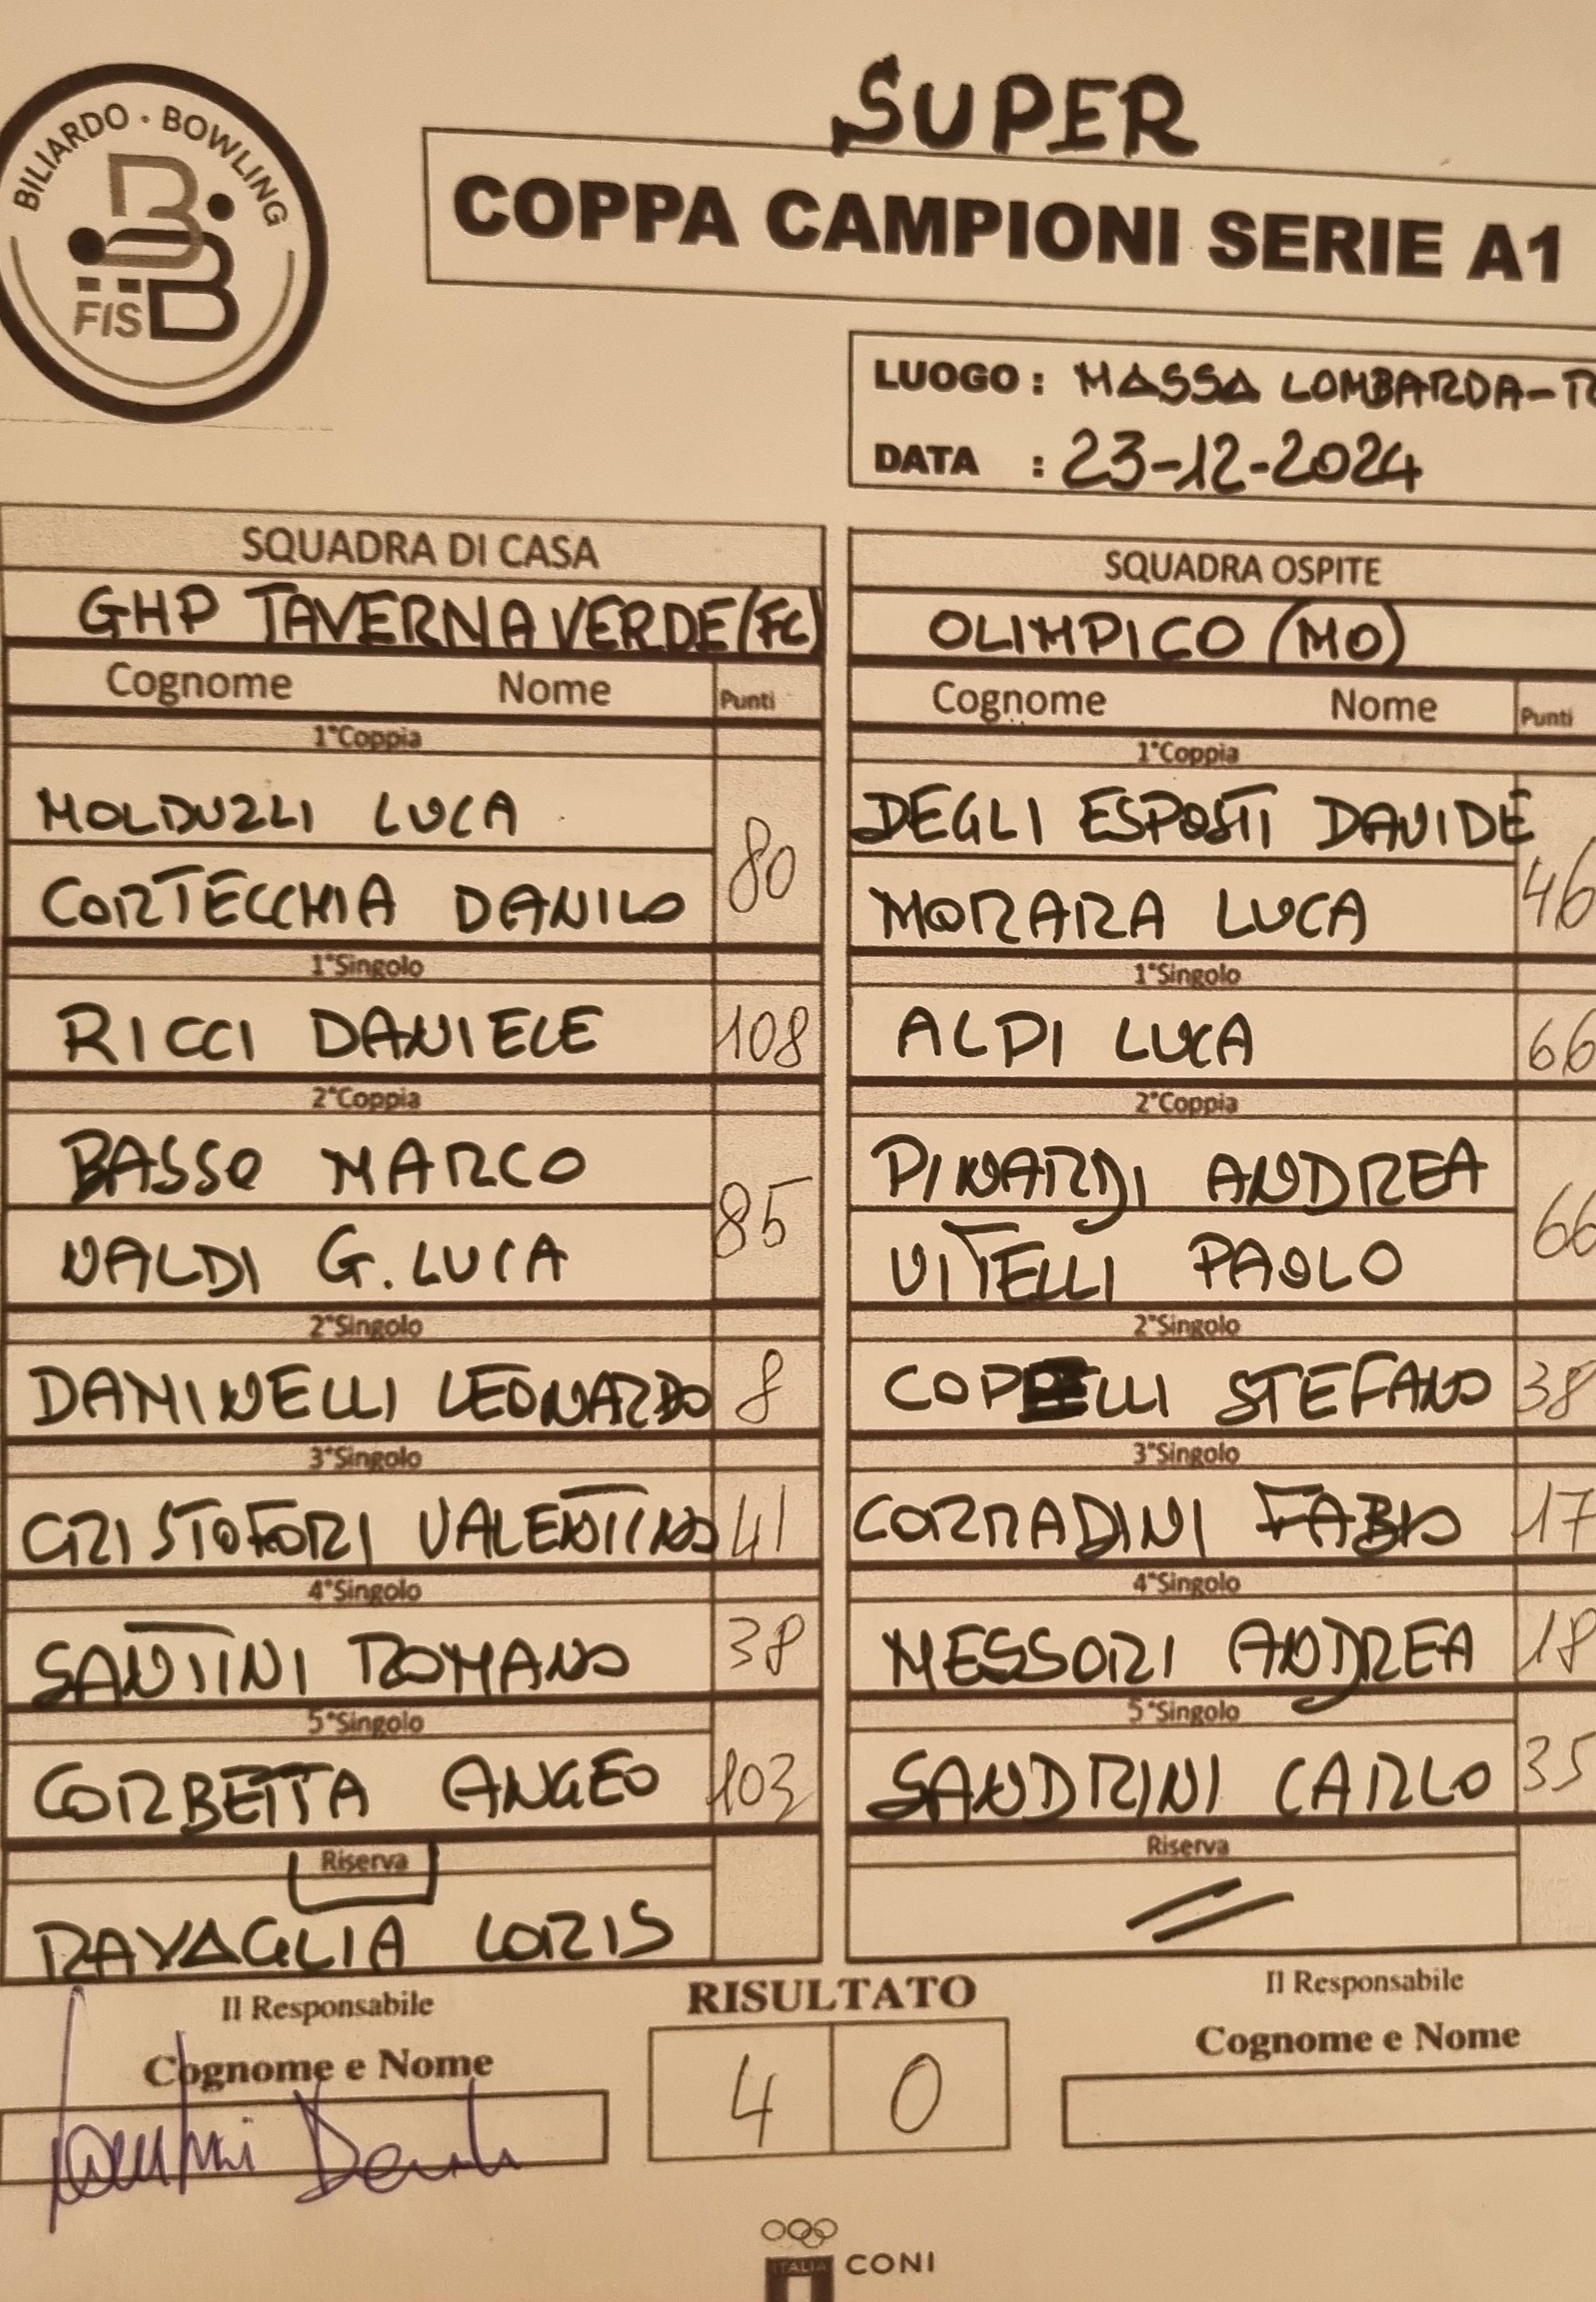 SUPER
BILIARDO · BOWLING
FISBB
COPPA CAMPIONI SERIE A1
LUOGO : MASSA LOMBARDA-R
DATA : 23-12-2024
SQUADRA DI CASA
GHP TAVERNA VERDE (FC)
Cognome Nome Punti
1°Coppia
MOLDUZZI LUCA
CORTECCHIA DANILO
80
1°Singolo
RICCI DANIELE 108
2°Coppia
BASSO MARCO
VALDI G. LUCA
85
2°Singolo
DAMINELLI LEONARDO 8
3°Singolo
CRISTOFORI VALENTINO 41
4°Singolo
SANTINI ROMANO 38
5°Singolo
CORBETTA ANGEO 103
Riserva
RAVAGLIA LORIS
Il Responsabile
Cognome e Nome
SQUADRA OSPITE
OLIMPICO (MO)
Cognome Nome Punti
1°Coppia
DEGLI ESPOSTI DAVIDE
MORARA LUCA
46
1°Singolo
ALDI LUCA 66
2°Coppia
PINARDI ANDREA
VITELLI PAOLO
66
2°Singolo
COPELLI STEFANO 38
3°Singolo
CORRADINI FABIO 17
4°Singolo
MESSORI ANDREA 18
5°Singolo
SANDRINI CARLO 35
Riserva
Il Responsabile
Cognome e Nome
RISULTATO
4 0
ITALIA
CONI